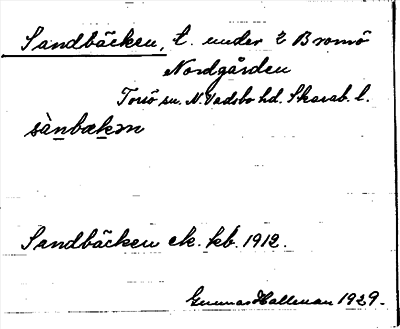 Sandbäcken, t. under 2 Bromö
Nordgården
Torsö sn. N. Vadsbo hd. Skarab. l.
sànbækən
Sandbäcken ek. kb. 1912.
Gunnar Hallman 1929.